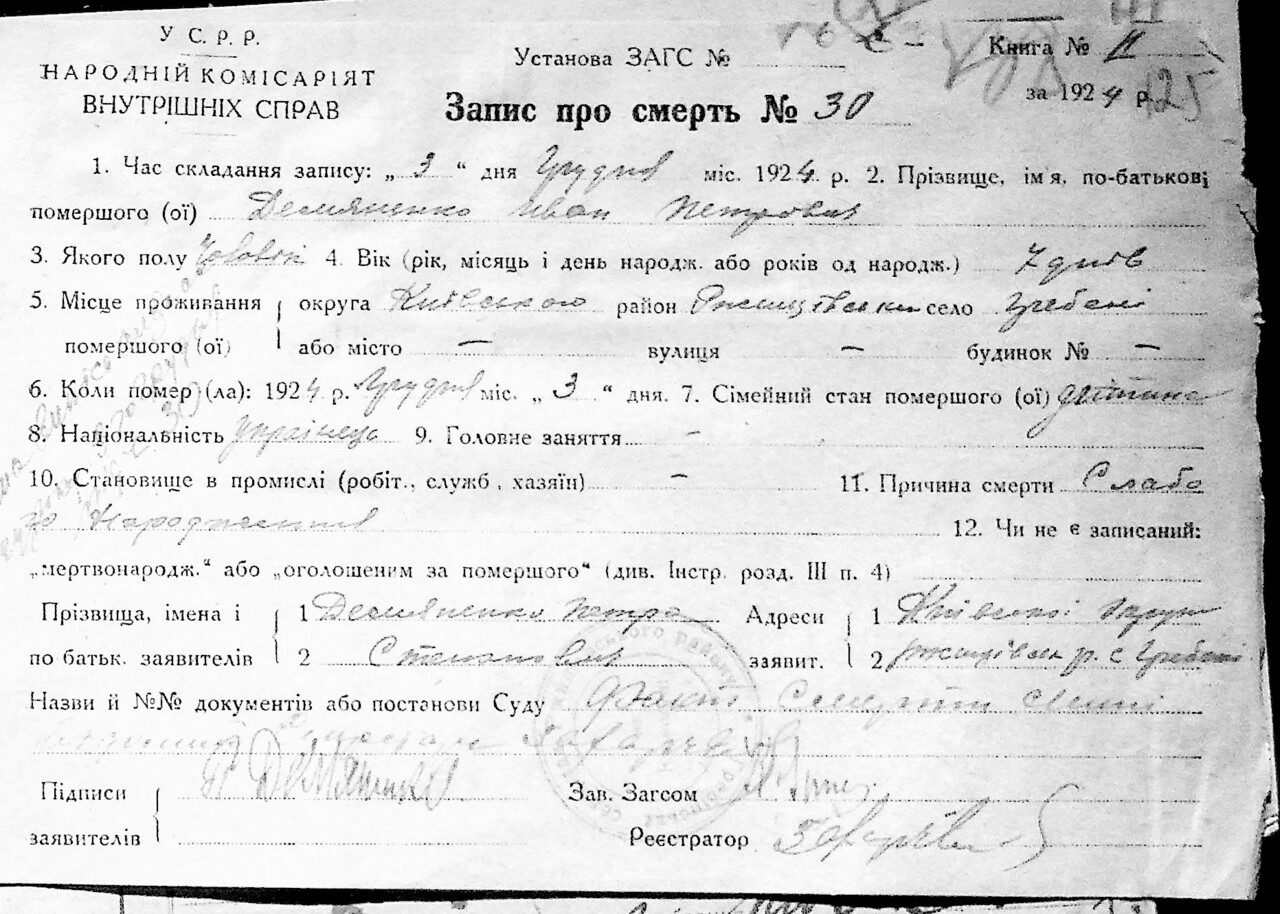 У С. Р. Р.
НАРОДНІЙ КОМІСАРІЯТ
ВНУТРІШНІХ СПРАВ
Установа ЗАГС №
Книга № II
за 1924 р. 125
Запис про смерть № 30
1. Час складання запису: „ 3 “ дня Грудня міс. 1924 р. 2. Прізвище, ім'я, по-батькові
помершого (ої) Демяненко Иван Петрович
3. Якого полу Чоловік 4. Вік (рік, місяць і день народж. або років од народж.) 7 днів
5. Місце проживання округа Київського район Ржищівськи село Гребені
помершого (ої) або місто — вулиця — будинок № —
6. Коли помер (ла): 1924 р. Грудня міс. „ 3 “ дня. 7. Сімейний стан помершого (ої) дитина
8. Національність українець 9. Головне заняття -
10. Становище в промислі (робіт., служб, хазяїн) - 11. Причина смерти Слабо
го Народження
12. Чи не є записаний:
„мертвонародж.“ або „оголошеним за помершого“ (див. Інстр. розд. III п. 4)
Прізвища, імена і 1 Демяненко Петра Адреси 1 Київської округи
по батьк. заявителів 2 Степанович заявит. 2 ржищівськ р. с Гребені
Назви й №№ документів або постанови Суду факт Смерти
Підписи П Демяненко Зав. Загсом
заявителів Реєстратор